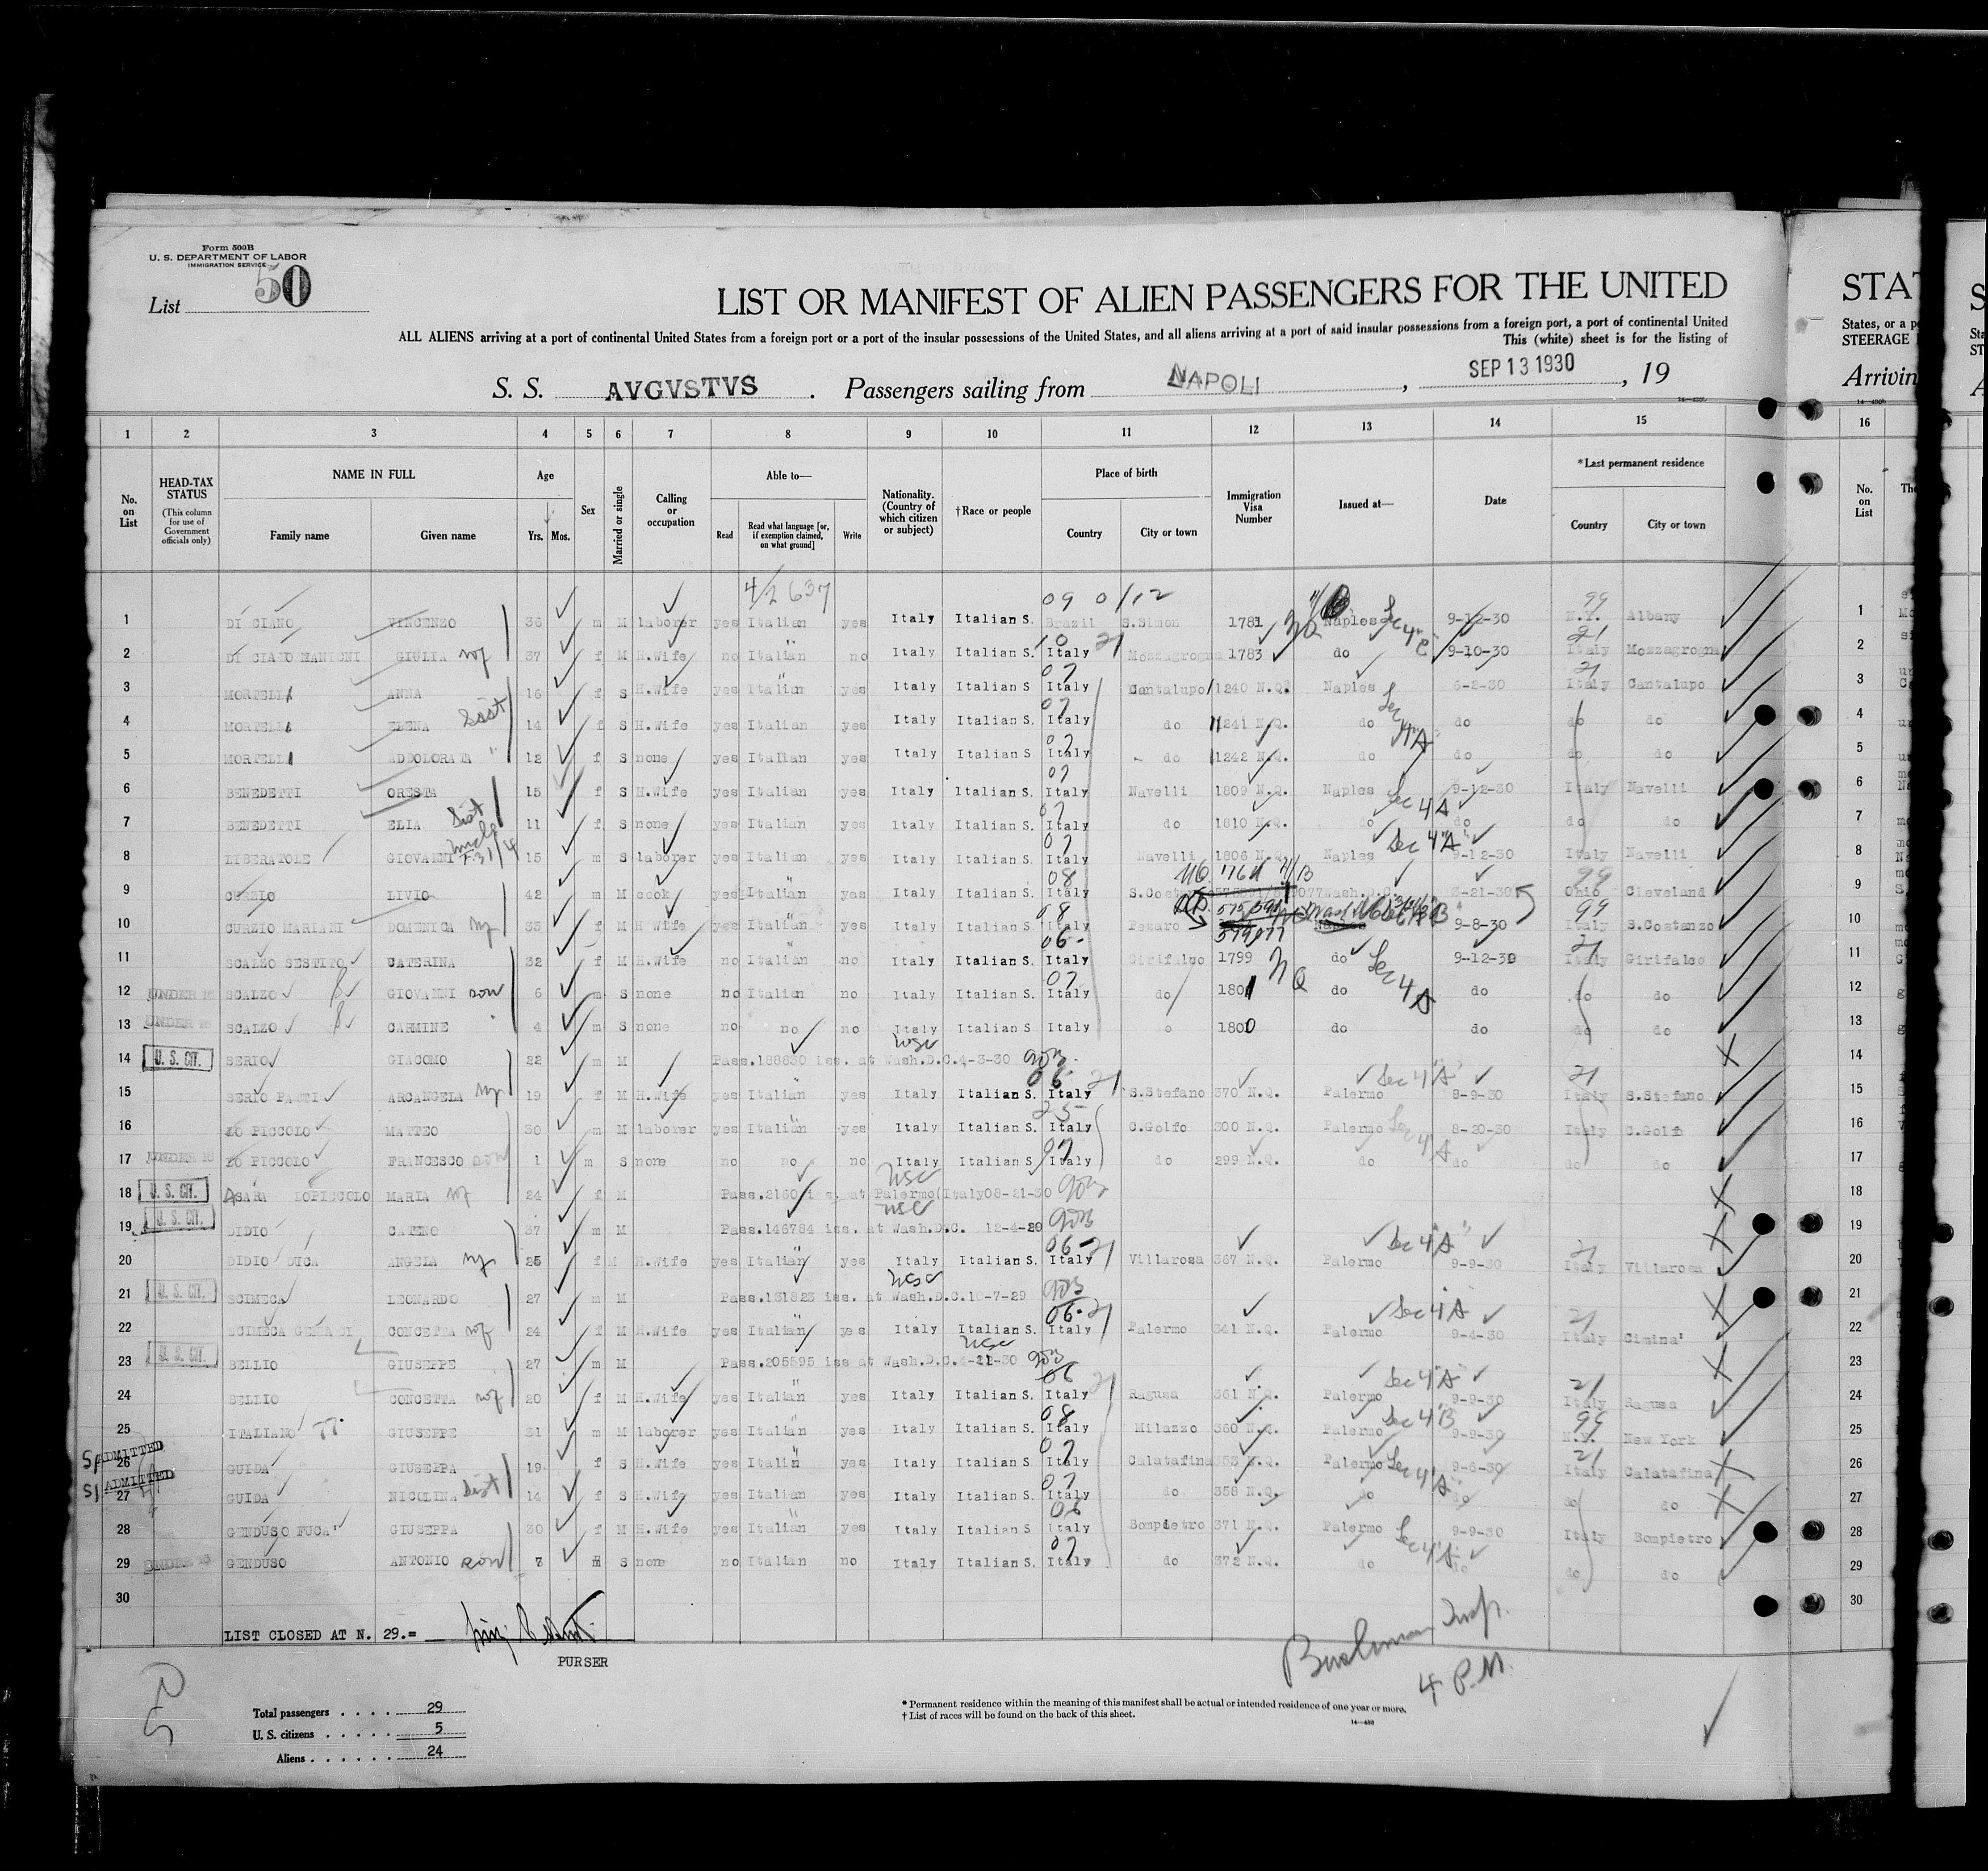 Form 500B
U. S. DEPARTMENT OF LABOR
IMMIGRATION SERVICE
List 50
LIST OR MANIFEST OF ALIEN PASSENGERS FOR THE UNITED
STA
ALL ALIENS arriving at a port of continental United States from a foreign port or a port of the insular possessions of the United States, and all aliens arriving at a port of said insular possessions from a foreign port, a port of continental United
States, or a p
This (white) sheet is for the listing of
STEERAGE
S. S. AVGVSTVS . Passengers sailing from NAPOLI , SEP 13 1930 , 19
Arrivin
1 2 3 4 5 6 7 8 9 10 11 12 13 14 15 16
No. on List
HEAD-TAX STATUS
(This column for use of Government officials only)
NAME IN FULL
Family name Given name
Age
Yrs. Mos.
Sex
Married or single
Calling or occupation
Able to—
Read Read what language [or, if exemption claimed, on what ground] Write
Nationality. (Country of which citizen or subject)
†Race or people
Place of birth
Country City or town
Immigration Visa Number
Issued at—
Date
*Last permanent residence
Country City or town
No. on List
4/2 637 09 0/12 99
1 DI CIANO VINCENZO 36 m M laborer yes Italian yes Italy Italian S. Brazil S.Simon 1781 Naples 9-12-30 N.Y. Albany 1
2 DI CIANO MANIONI GIULIA wf 37 f M H.Wife no Italian no Italy Italian S. Italy Mozzagrogna 1783 do 9-10-30 Italy Mozzagrogna 2
3 MORTELLI ANNA 16 f S H.Wife yes Italian yes Italy Italian S Italy Cantalupo 1240 N.Q. Naples 6-2-30 Italy Cantalupo 3
4 MORTELLI ELENA Sist 14 f S H.Wife yes Italian yes Italy Italian S. Italy do 1241 N.Q. do do do do 4
5 MORTELLI ADDOLORATA " 12 f S none yes Italian yes Italy Italian S. Italy do 1242 N.Q. do do do do 5
6 BENEDETTI ORESTA 15 f S H.Wife yes Italian yes Italy Italian S. Italy Navelli 1809 N.Q. Naples 9-12-30 Italy Navelli 6
7 BENEDETTI ELIA Sist 11 f S none yes Italian yes Italy Italian S. Italy do 1810 N.Q. do Sec 4 A do do do 7
8 LIBERATORE GIOVANNI 15 m S laborer yes Italian yes Italy Italian S. Italy Navelli 1806 N.Q. Naples Sec 4 "A" 9-12-30 Italy Navelli 8
9 CURZIO LIVIO 42 m M cook yes Italian yes Italy Italian S. Italy Wash.D.C. 3-21-30 Ohio Cleveland 9
10 CURZIO MARIANI DOMENICA wf 33 f M H Wife yes Italian yes Italy Italian S. Italy Pezaro 9-8-30 Italy S.Costanzo 10
11 SCALZO SESTITO CATERINA 32 f M H.Wife no Italian no Italy Italian S. Italy Girifalco 1799 do 9-12-30 Italy Girifalco 11
12 UNDER 16 SCALZO GIOVANNI son 6 m S none no Italian no Italy Italian S. Italy do 1801 do do do do 12
13 UNDER 16 SCALZO CARMINE 4 m S none no no no Italy Italian S Italy 1800 do do do do 13
14 U. S. CIT. SERIO GIACOMO 22 m M Pass.188830 iss. at Wash.D.C.4-3-30 14
15 SERIO PATTI ARCANGELA wf 19 f M H.Wife yes Italian yes Italy Italian S. Italy S.Stefano 370 N.Q. Palermo Sec 4 "A" 8-9-30 Italy S.Stefano 15
16 LO PICCOLO MATTEO 30 m M laborer yes Italian yes Italy Italian S. Italy C.Golfo 300 N.Q. Palermo 8-20-30 Italy C.Golfo 16
17 UNDER 16 LO PICCOLO FRANCESCO son 1 m S none no no no Italy Italian S Italy do 299 N.Q. do do do do 17
18 U. S. CIT. ASARA LOPICCOLO MARIA wf 24 f M Pass.2160 iss. at Palermo(Italy08-21-30 18
19 U. S. CIT. DIDIO CATENO 37 m M Pass.146784 iss. at Wash.D.C. 12-4-29 19
20 DIDIO DUCA ANGELA wf 25 f M H.Wife yes Italian yes Italy Italian S. Italy Villarosa 367 N.Q. Palermo Sec 4 "A" 9-9-30 Italy Villarosa 20
21 U. S. CIT. SCIMECA LEONARDO 27 m M Pass.131823 iss. at Wash.D.C.10-7-29 21
22 SCIMECA CONCETTA wf 24 f M H.Wife yes Italian yes Italy Italian S. Italy Palermo 341 N.Q. Palermo Sec 4 "A" 9-4-30 Italy Cimina' 22
23 U. S. CIT. BELLIO GIUSEPPE 27 m M Pass.205595 iss at Wash.D.C.4-21-30 23
24 BELLIO CONCETTA wf 20 f M H.Wife yes Italian yes Italy Italian S. Italy Ragusa 361 N.Q. Palermo Sec 4 "A" 9-9-30 Italy Ragusa 24
25 ITALIANO GIUSEPPE 31 m M laborer yes Italian yes Italy Italian S. Italy Milazzo 360 N.Q. Palermo Sec 4 "B" 9-9-30 N.Y. New York 25
26 ADMITTED GUIDA GIUSEPPA 19 f S H.Wife yes Italin yes Italy Italian S. Italy Calatafina 353 N.Q. Palermo 9-6-30 Italy Calatafina 26
27 ADMITTED GUIDA NICOLINA Sist 14 f S H.Wife yes Italian yes Italy Italian S. Italy do 358 N.Q. do do do do 27
28 GENDUSO FUCA' GIUSEPPA 30 f M H.Wife yes Italian yes Italy Italian S Italy Bompietro 371 N.Q. Palermo 9-9-30 Italy Bompietro 28
29 UNDER 16 GENDUSO ANTONIO son 7 m S none no Italian no Italy Italian S. Italy do 372 N.Q. do do do do 29
30 30
LIST CLOSED AT N. 29.=
PURSER
4 P.M.
50
Total passengers . . . . 29
U. S. citizens . . . . . 5
Aliens . . . . . . 24
* Permanent residence within the meaning of this manifest shall be actual or intended residence of one year or more.
† List of races will be found on the back of this sheet.